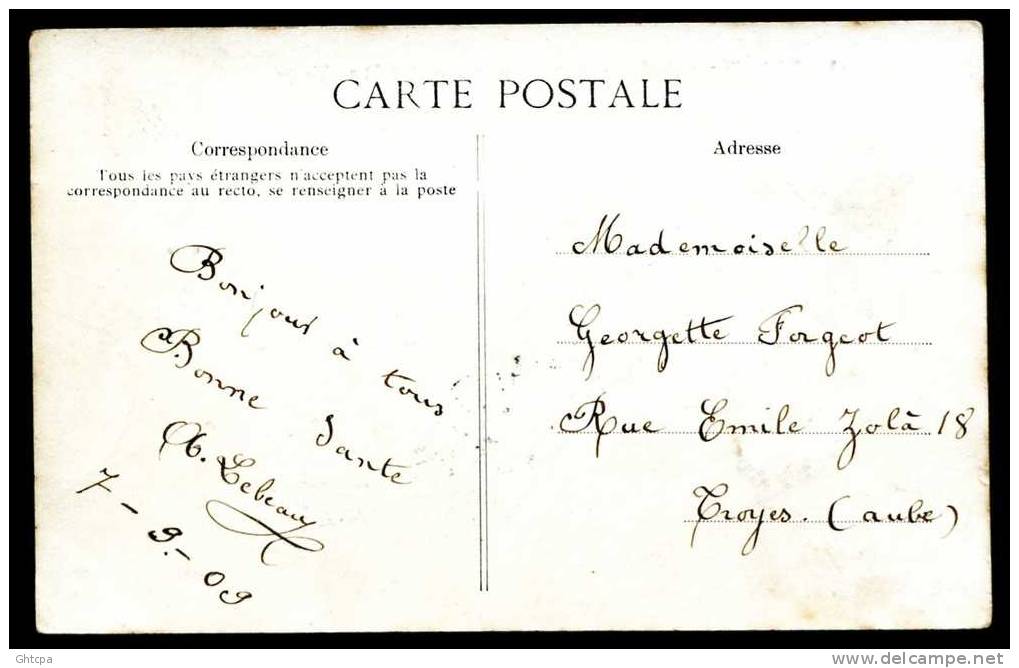 CARTE POSTALE
Correspondance
Tous les pays étrangers n'acceptent pas la
correspondance au recto, se renseigner à la poste
Bonjour à tous
Bonne Sante
Lebeau
7 - 9. - 09
Adresse
Mademoiselle
Georgette Forgeot
Rue Emile Zolà 18
Troyes. (aube)
Ghtcpa
delcampe.net